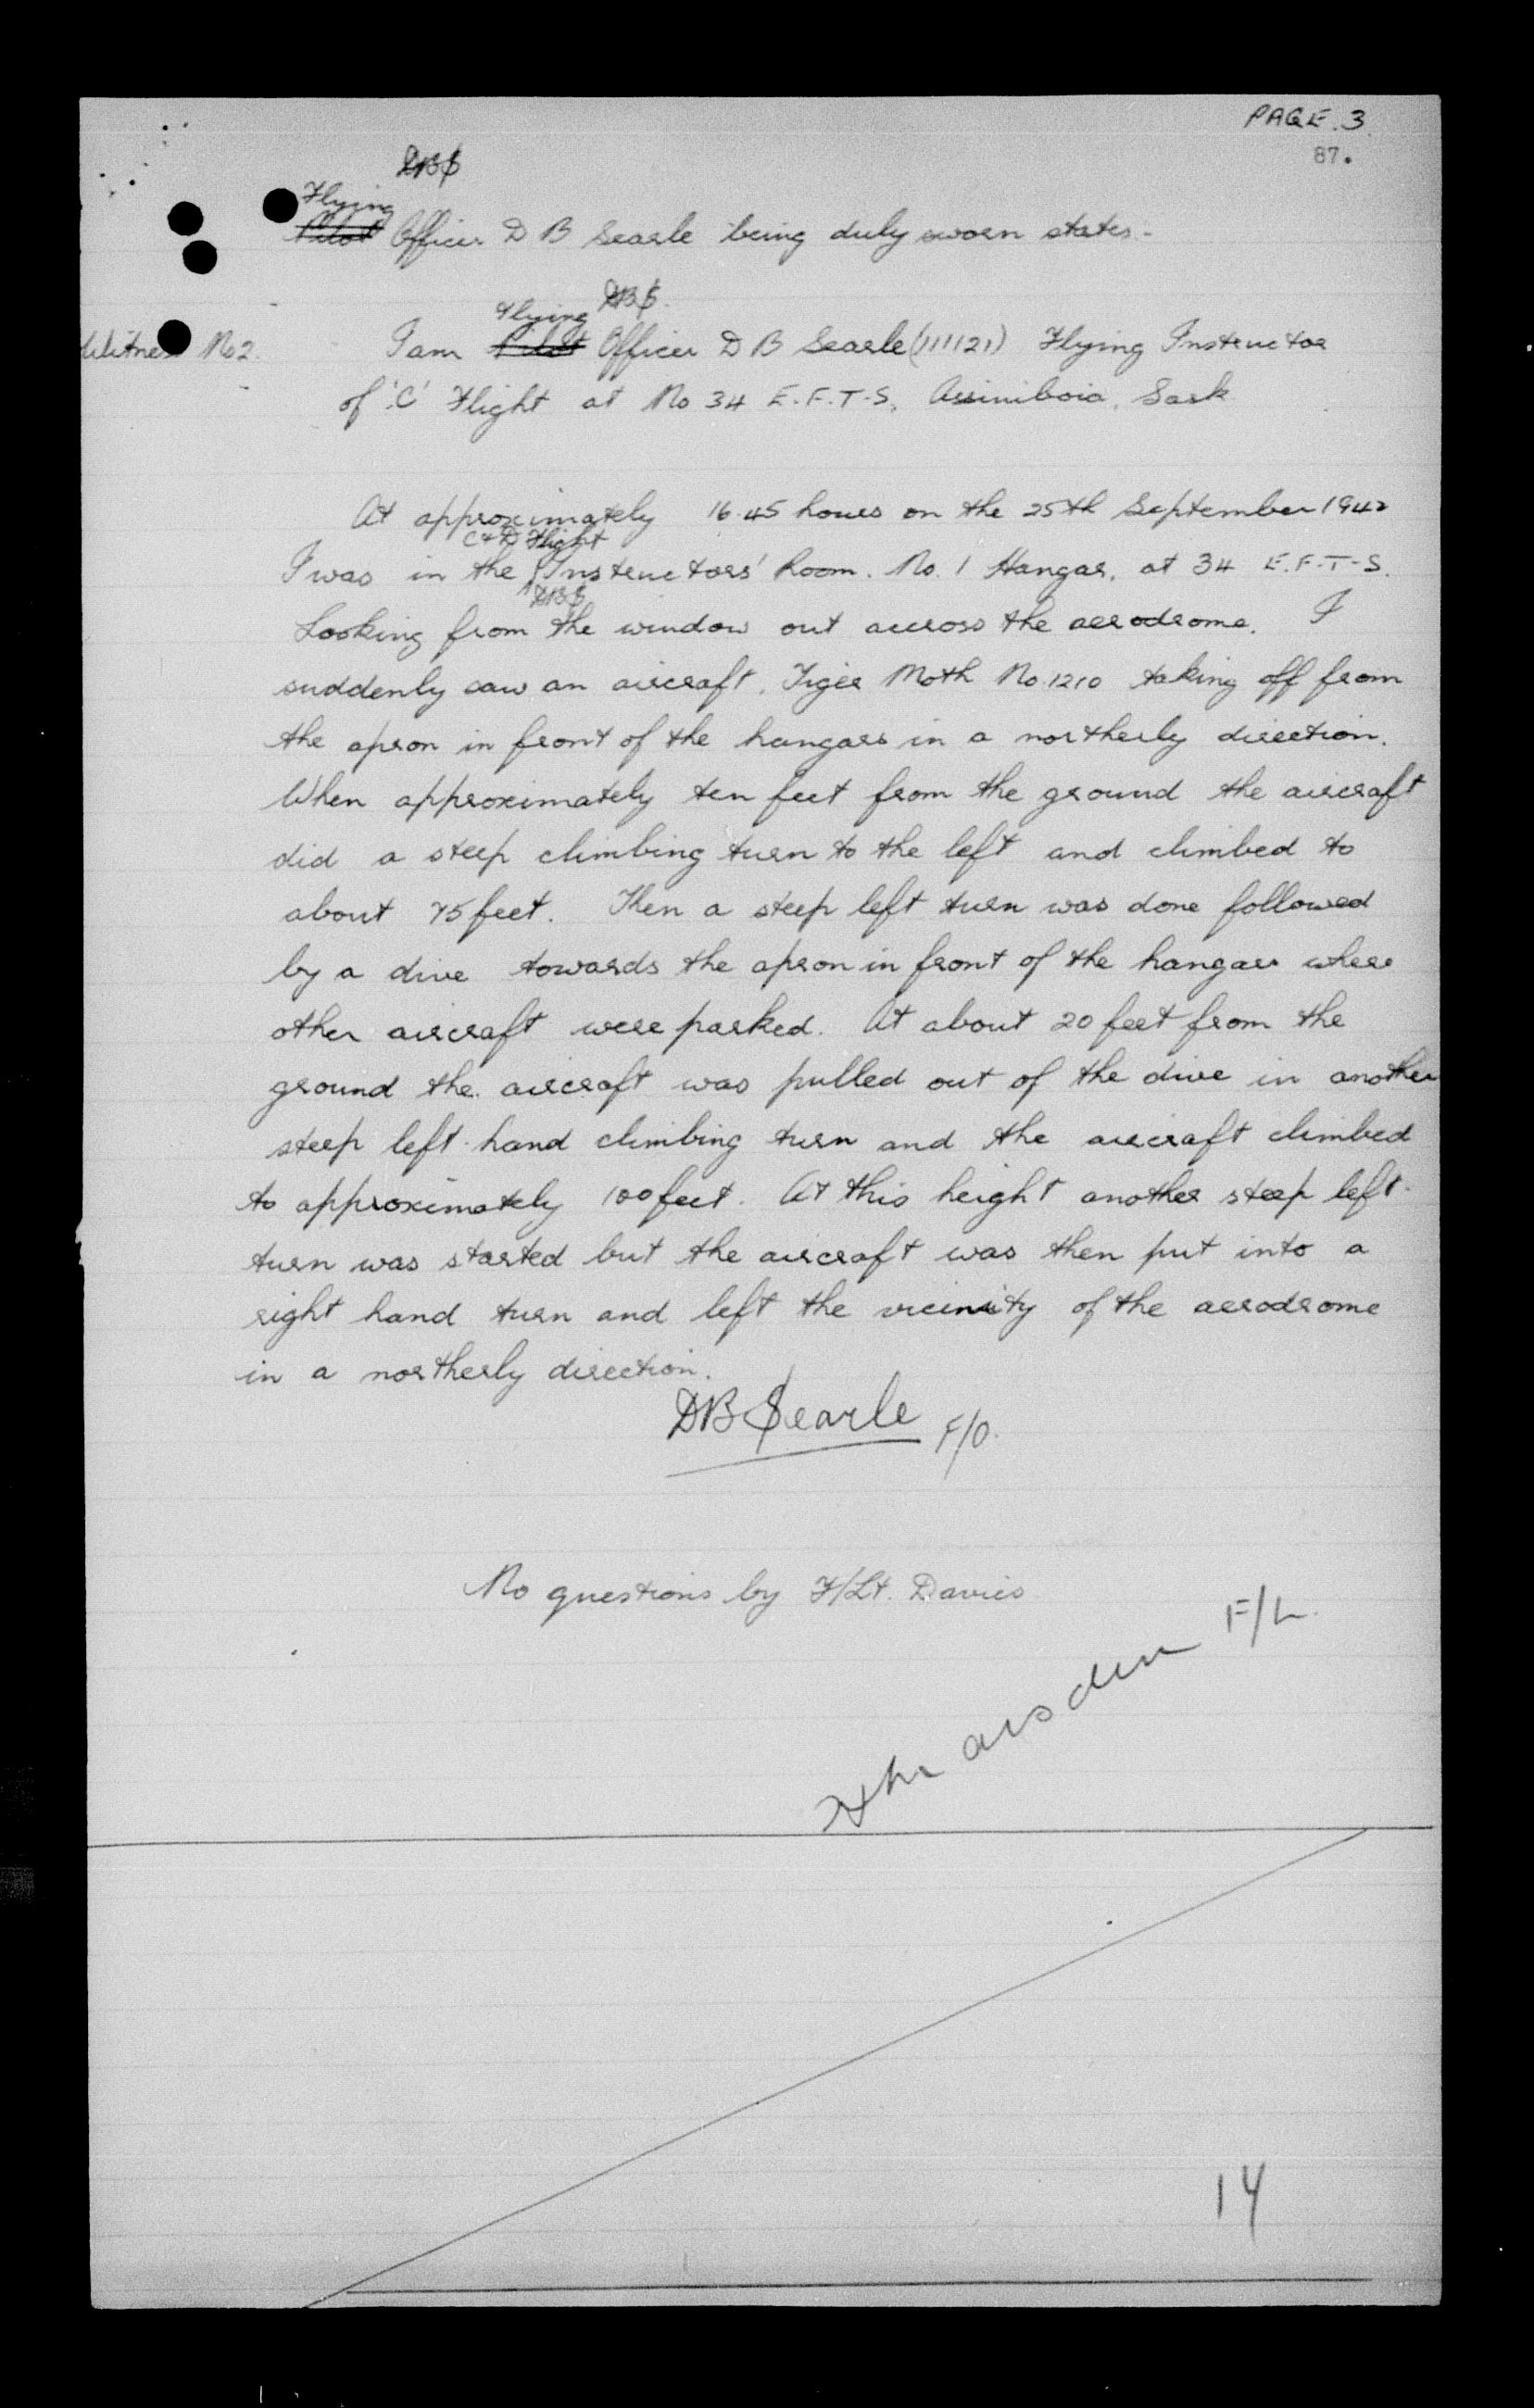 PAGE.3
87.
DBS
Flying
Pilot Officer D B Searle being duly sworn states.-
DBS.
Flying
Witness No2. I am Pilot Officer D B Searle (111121) Flying Instructor
of 'C' Flight at No 34 E.F.T.S. Assiniboia, Sask
At approximately 16.45 hours on the 25th September 1942
C & D Flight
I was in the Instructors' Room. No. 1 Hangar, at 34 E.F.T.S.
DBS
Looking from the window out accross the aerodrome. I
suddenly saw an aircraft, Tiger Moth No.1210 taking off from
the apron in front of the hangars in a northerly direction.
When approximately ten feet from the ground the aircraft
did a steep climbing turn to the left and climbed to
about 75 feet. Then a steep left turn was done followed
by a dive towards the apron in front of the hangars where
other aircraft were parked. At about 20 feet from the
ground the aircraft was pulled out of the dive in another
steep left-hand climbing turn and the aircraft climbed
to approximately 100 feet. At this height another steep left
turn was started but the aircraft was then put into a
right hand turn and left the vicinity of the aerodrome
in a northerly direction.
DB Searle F/O.
No questions by F/Lt. Davies
F/L.
14